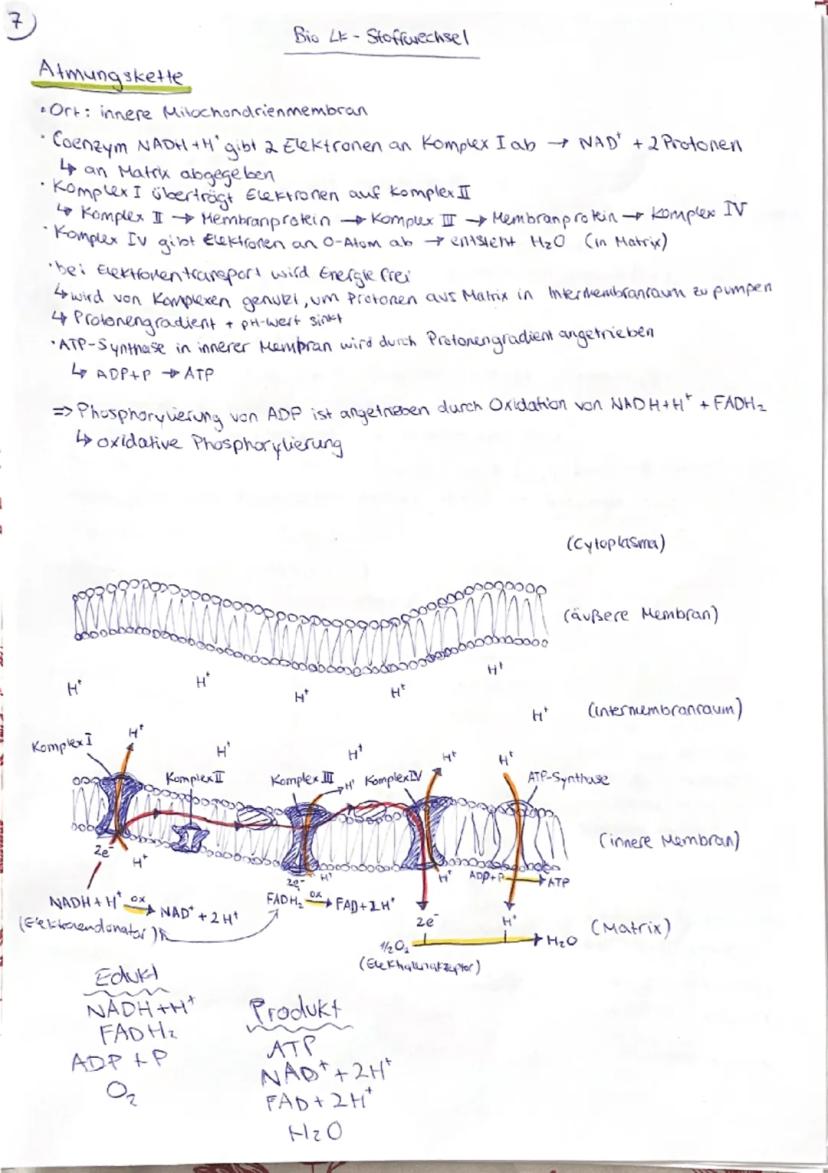 7
Bio LK - Stoffwechsel
Atmungskette
• Ort: innere Mitochondrienmembran
• Coenzym NADH+H⁺ gibt 2 Elektronen an Komplex I ab → NAD⁺ + 2 Protonen
↳ an Matrix abgegeben
• Komplex I überträgt Elektronen auf Komplex II
↳ Komplex II → Membranprotein → Komplex III → Membranprotein → Komplex IV
• Komplex IV gibt Elektronen an O-Atom ab → entsteht H₂O (in Matrix)
• bei Elektronentransport wird Energie frei
↳ wird von Komplexen genutzt, um Protonen aus Matrix in Intermembranraum zu pumpen
↳ Protonengradient + pH-Wert sinkt
• ATP-Synthase in innerer Membran wird durch Protonengradient angetrieben
↳ ADP+P → ATP
⇒ Phosphorylierung von ADP ist angetrieben durch Oxidation von NADH+H⁺ + FADH₂
↳ oxidative Phosphorylierung
(Cytoplasma)
(äußere Membran)
H⁺ H⁺ H⁺ H⁺ H⁺
H⁺ (Intermembranraum)
Komplex I H⁺ H⁺ H⁺ H⁺ H⁺
Komplex II Komplex III H⁺ Komplex IV ATP-Synthase
(innere Membran)
2e⁻ H⁺ 2e⁻ H⁺ H⁺ ADP+P → ATP
NADH+H⁺ ox → NAD⁺ + 2H⁺ FADH₂ ox → FAD+2H⁺ 2e⁻ H⁺ (Matrix)
(Elektronendonator)
½O₂ → H₂O
(Elektronenakzeptor)
Edukt
NADH+H⁺
FADH₂
ADP + P
O₂
Produkt
ATP
NAD⁺ + 2H⁺
FAD + 2H⁺
H₂O